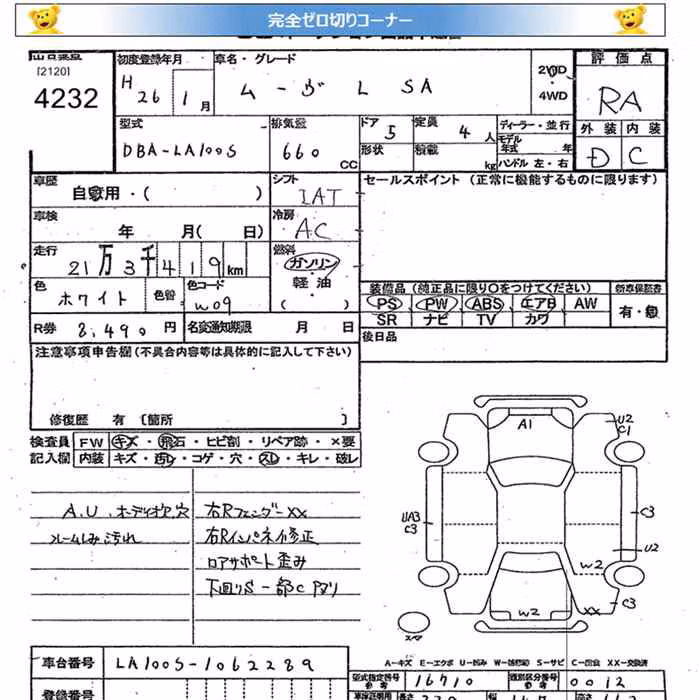 完全ゼロ切りコーナー
[2120]
4232
初度登録年月
H 26 1月
車名・グレード
ムーヴ L SA
2WD
4WD
評価点
RA
外装 内装
D C
型式
DBA-LA100S
排気量
660 cc
ドア 5
形状
定員 4人
積載 kg
ディーラー・並行
モデル年式 年
ハンドル 左・右
車歴
自家用・( )
シフト
IAT
セールスポイント (正常に機能するものに限ります)
車検
年 月( 日)
冷房
AC
走行
21万3千419km
燃料
ガソリン
軽油
( )
色
ホワイト
色替
色コード
W09
装備品 (純正品に限り○をつけてください)
新車保証書
PS PW ABS エアB AW
SR ナビ TV カワ
有・無
R券 8,490円
名変通知期限 月 日
後日品
注意事項申告欄 (不具合内容等は具体的に記入して下さい)
修復歴 有 [箇所 ]
検査員
記入欄
FW キズ・飛石・ヒビ割・リペア跡・×要
内装 キズ・汚レ・コゲ・穴・スレ・キレ・破レ
A.U.オーディオ欠穴
フレームしみ汚れ
右RフェンダーXX
右Rインパネ修正
ロアサポート歪み
下回りS 一部C
A1
U2
C1
UA3
C3
C3
U2
W2
W2
XX
C3
スペア
A-キズ E-エクボ U-凹み W-補修跡 S-サビ C-腐食 XX-交換済
車台番号
LA100S-1062289
型式指定番号
16710
類別区分番号
0012
登録番号